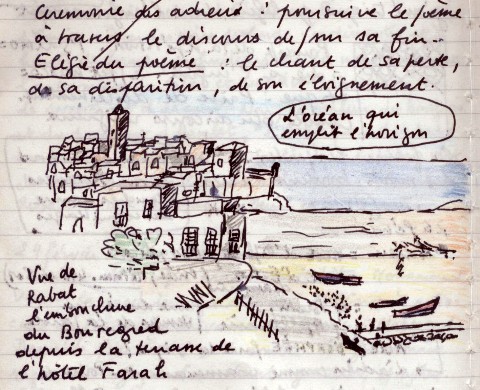 Cérémonie des adieux : poursuivre le poème
à travers le discours de/sur sa fin..
Elégie du poème : le chant de sa perte,
de sa disparition, de son éloignement.
L'océan qui
emplit l'horizon
Vue de
Rabat
l'embouchure
du Bouregreg
depuis la terrasse de
l'hôtel Farah